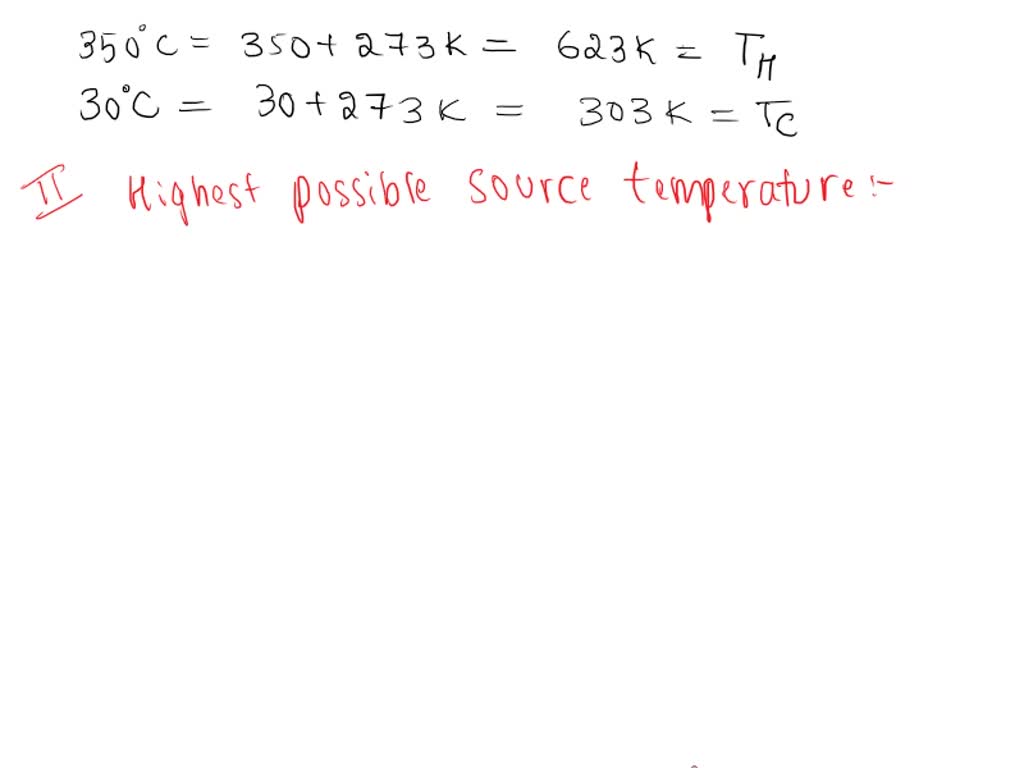 350°C = 350 + 273K = 623K = T_H
30°C = 30 + 273K = 303K = T_C
II Highest possible source temperature:-